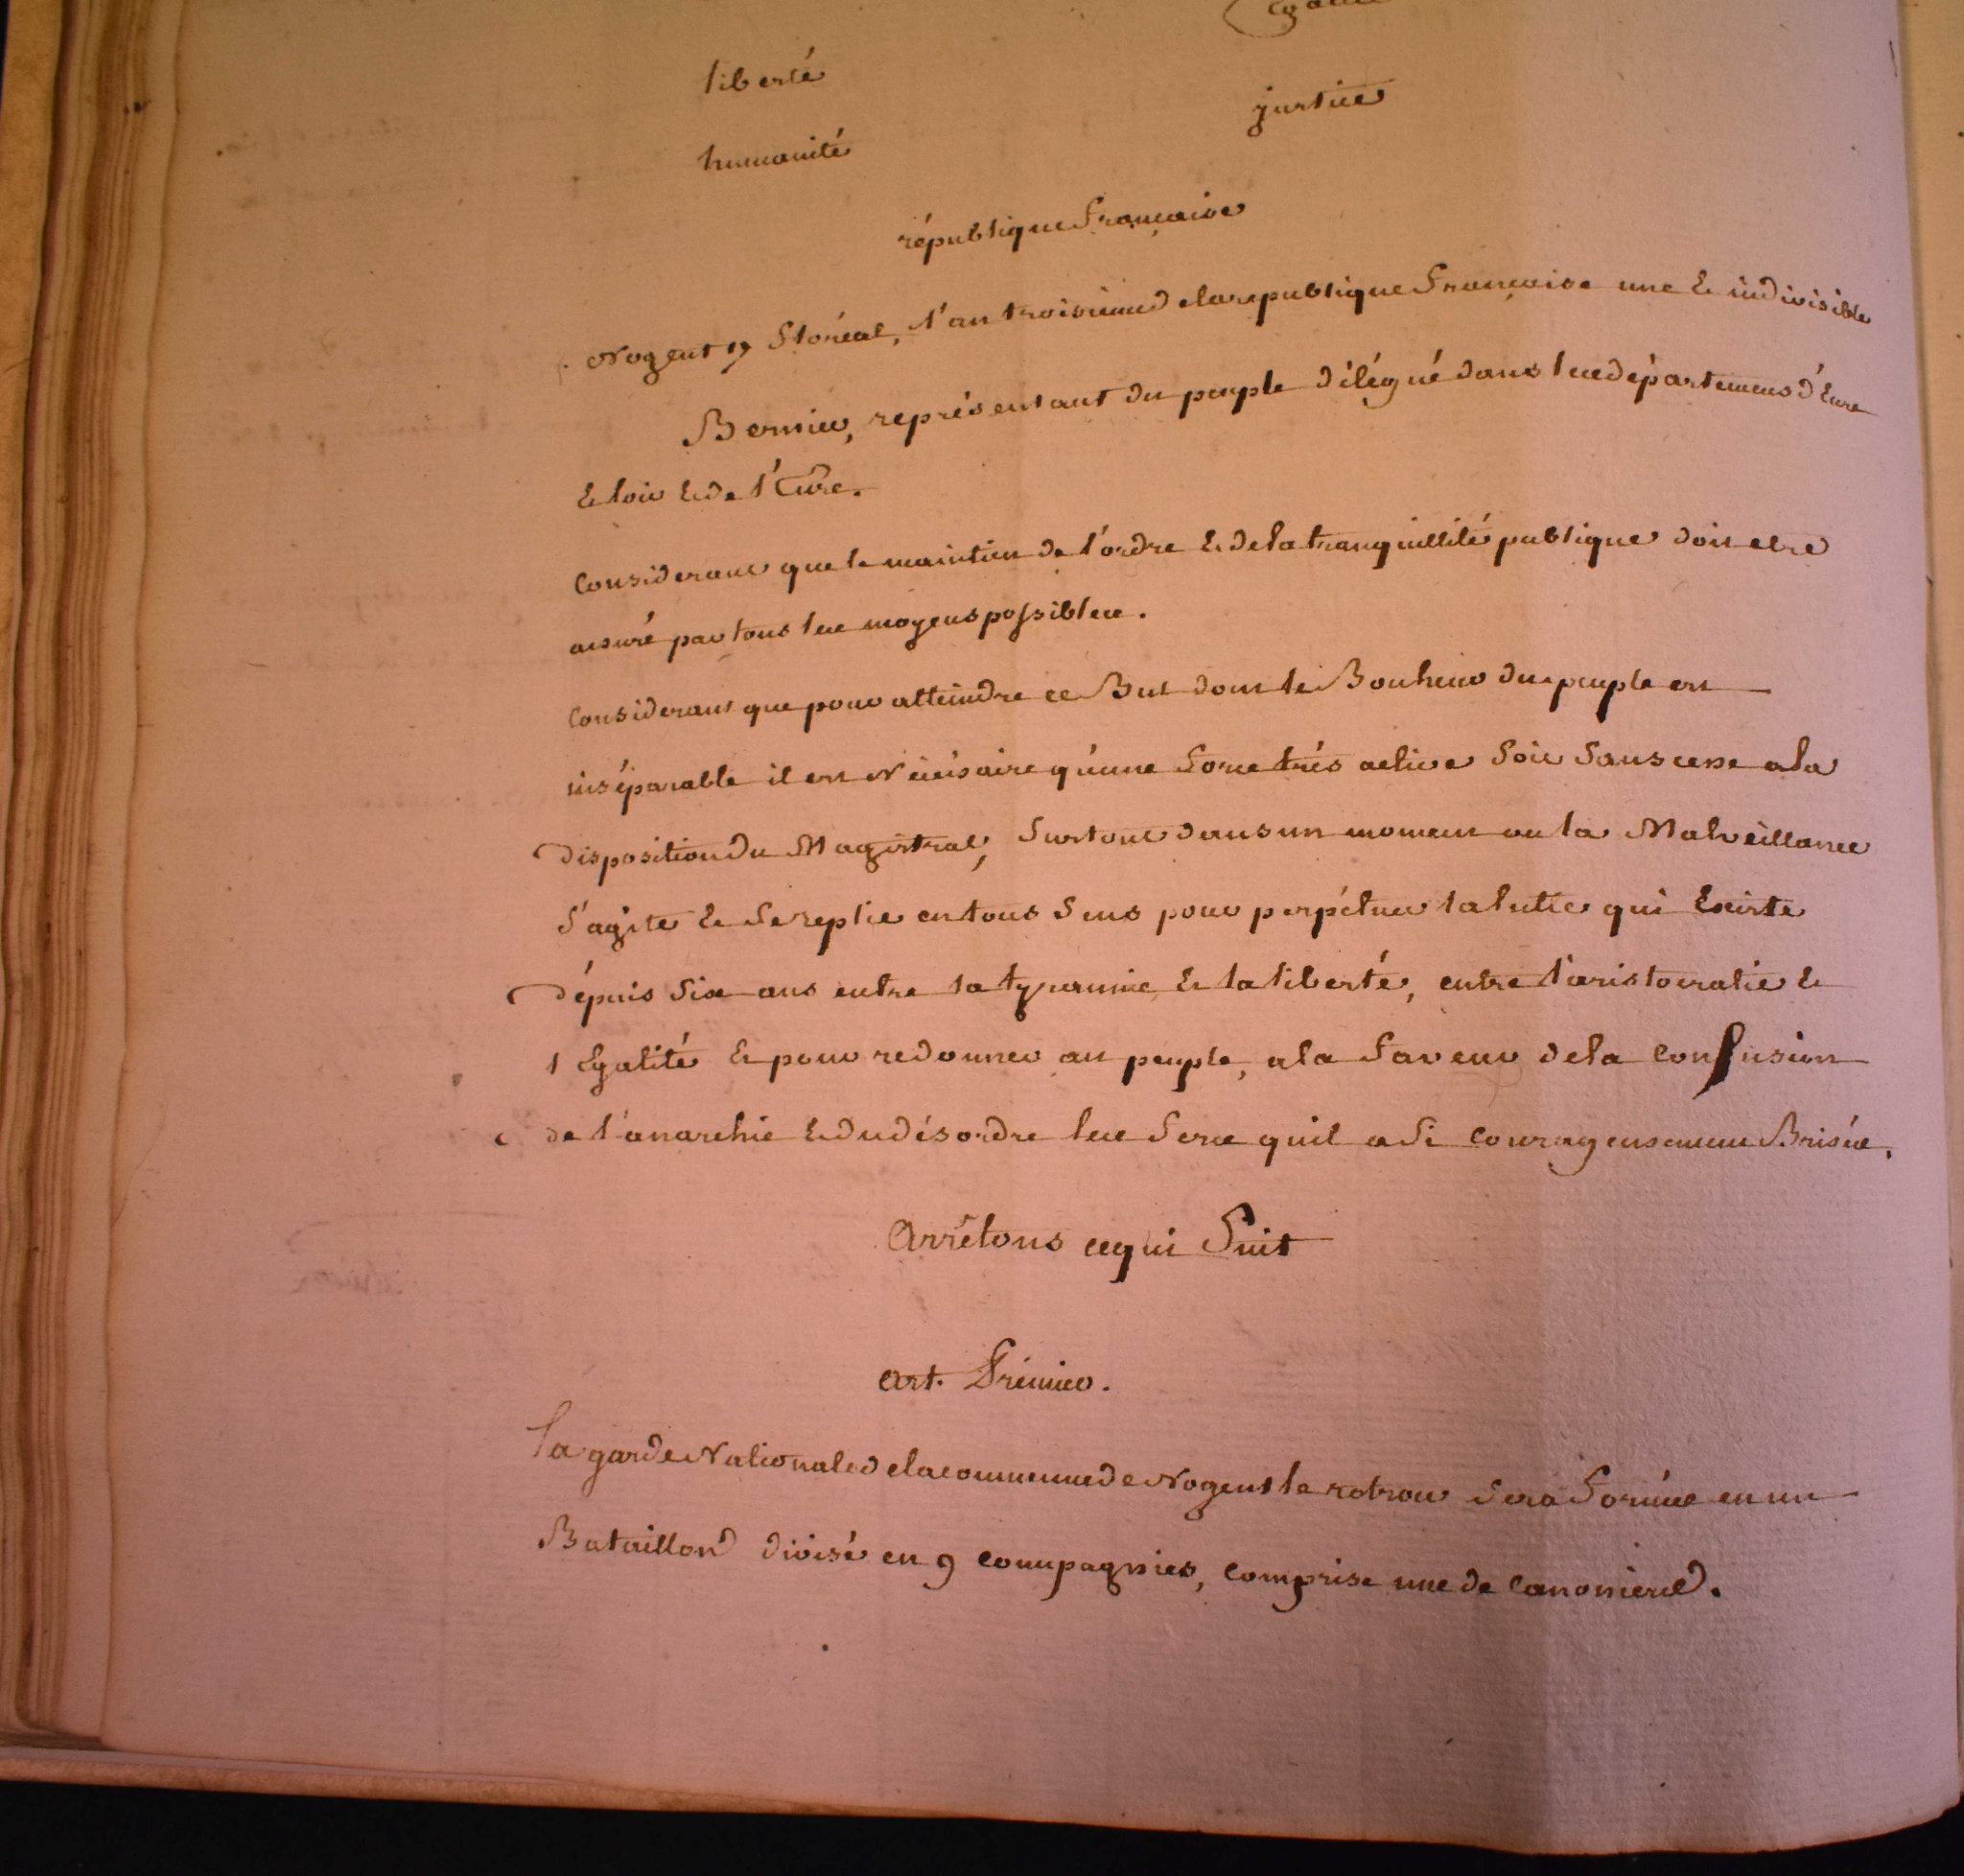 Egalité
liberté
justice
humanité
république française
Nogent 19 floréal, l'an troisieme de la republique française une & indivisible
Bernier, représentant du peuple délégué dans les départemens d'Eure
& loir & de l'Eure.
Considerant que le maintien de l'ordre & de la tranquillité publique doit etre
assuré par tous les moyens possibles.
Considerant que pour atteindre ce But dont le Bonheur du peuple est
inséparable il est Nécésaire qu'une force trés active soit sans cesse a la
disposition du Magistrat, surtout dans un moment ou la Malveillance
s'agite & se replie en tous sens pour perpétuer la lutte qui Existe
dépuis six ans entre la tyrannie & la liberté, entre l'aristocratie &
l Egalité & pour redonner au peuple, a la faveur de la confusion
de l'anarchie & du désordre les fers quil a si courageusement Brisés.
Arrétons ce qui Suit
Art. Prémier.
la garde Nationale de la commune de Nogent le rotrou sera formée en un
Bataillon divisé en 9 compagnies, comprise une de canoniers.